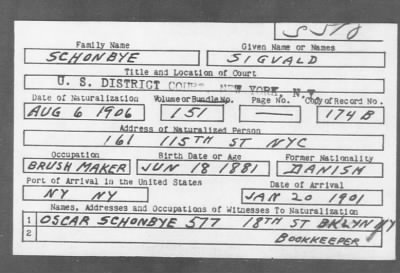 S 510
Family Name Given Name or Names
SCHONBYE SIGVALD
Title and Location of Court
U. S. DISTRICT COURT, NEW YORK, N.Y.
Date of Naturalization Volume or Bundle No. Page No. Copy of Record No.
AUG 6 1906 151 — 174B
Address of Naturalized Person
161 115TH ST NYC
Occupation Birth Date or Age Former Nationality
BRUSH MAKER JUN 18 1881 DANISH
Port of Arrival in the United States Date of Arrival
NY NY JAN 20 1901
Names, Addresses and Occupations of Witnesses To Naturalization
1 OSCAR SCHONBYE 577 18TH ST BKLYN NY
2 BOOKKEEPER